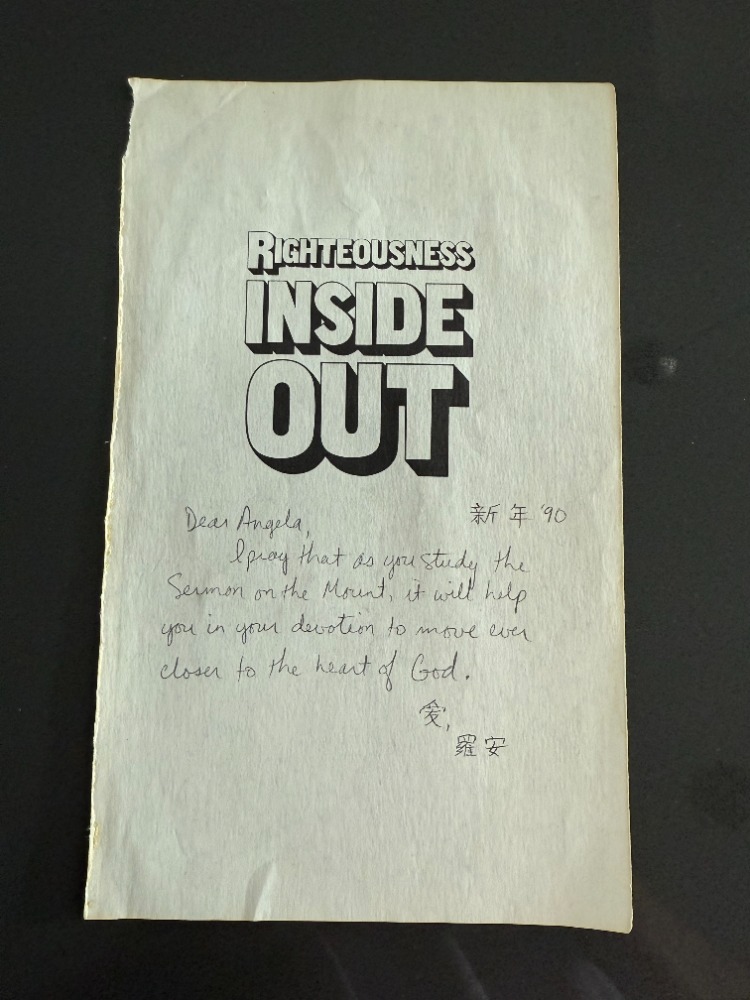 RIGHTEOUSNESS
INSIDE
OUT
Dear Angela, 新年 '90
I pray that as you study the
Sermon on the Mount, it will help
you in your devotion to move ever
closer to the heart of God.
爱,
羅安